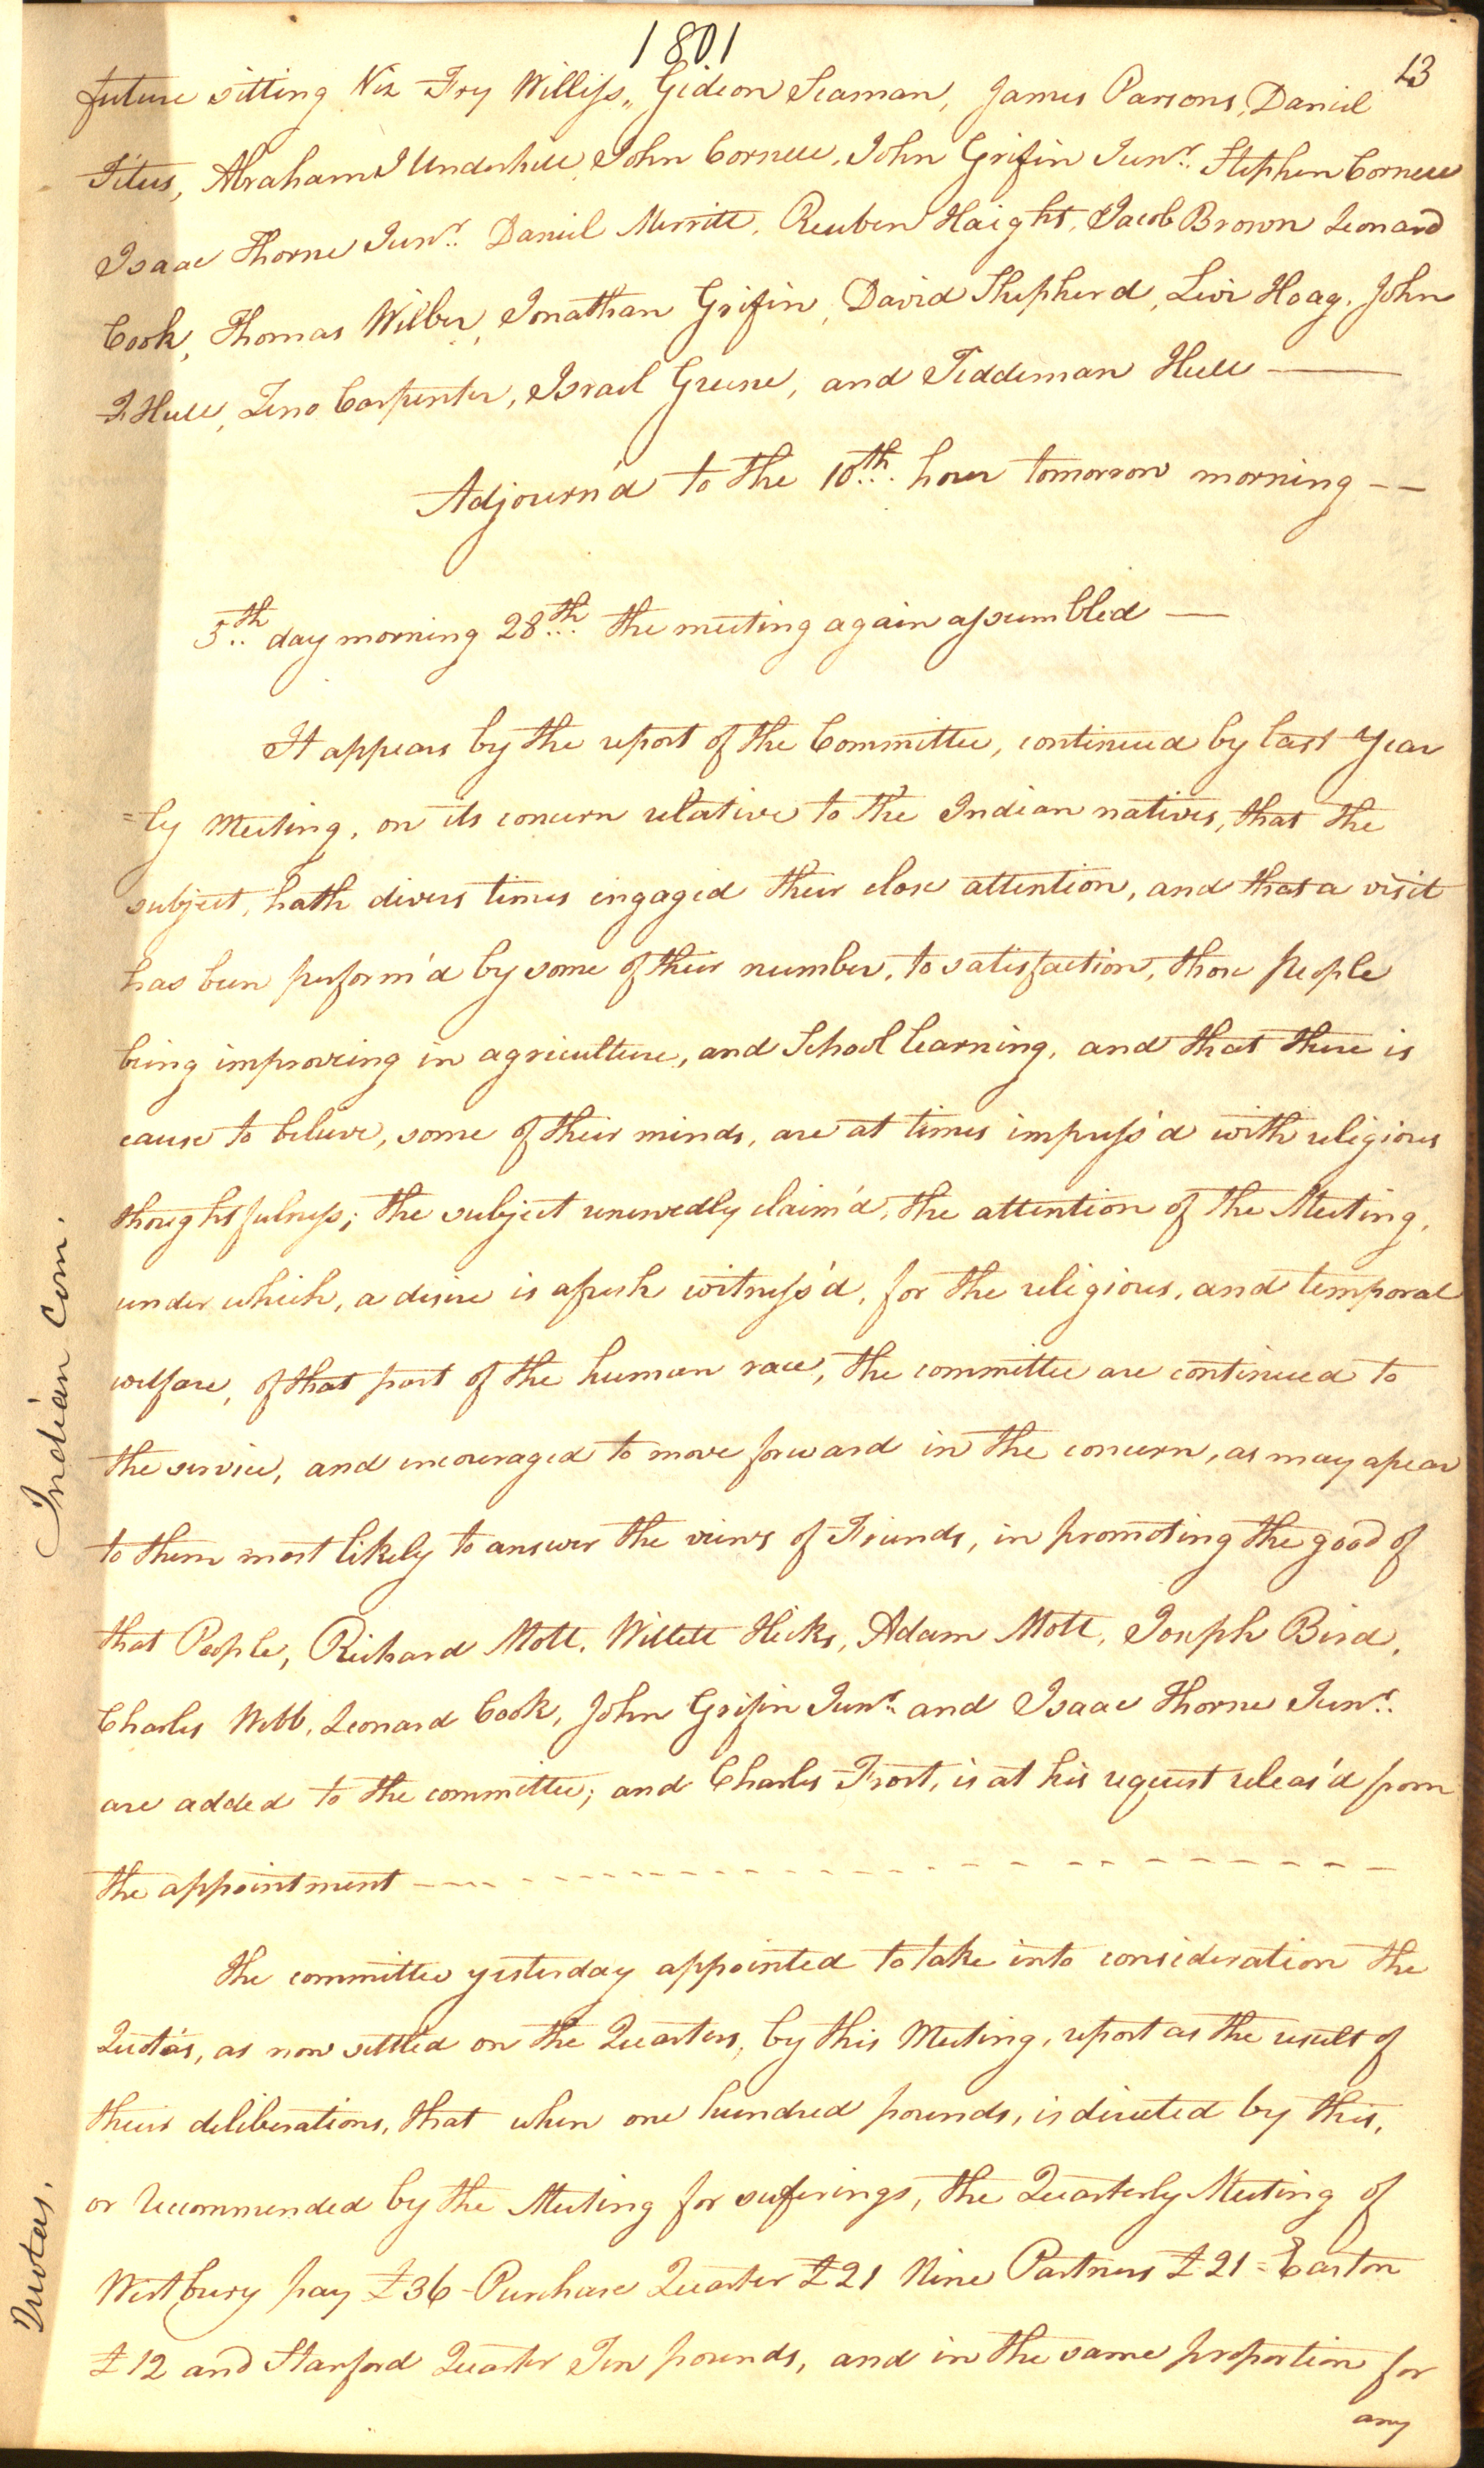 1801
13
future sitting Viz Fry Williss, Gideon Seaman, James Parsons, Daniel
Titus, Abraham I Underhill, John Cornell, John Griffin Junr. Stephen Cornell
Isaac Thorne Junr. Daniel Merritt, Reuben Haight, Jacob Brown Leonard
Cook, Thomas Wilber, Jonathan Griffin, David Shepherd, Levi Hoag, John
I Hull, Zeno Carpenter, Israel Greene, and Tiddeman Hull —
Adjourn'd to the 10th. hour tomorrow morning —
5th day morning 28th. the meeting again assembled —
It appears by the report of the Committee, continued by last Year
=ly Meeting, on its concern relative to the Indian natives, that the
subject, hath divers times engaged their close attention, and that a visit
has been perform'd by some of their number, to satisfaction, those people
being improving in agriculture, and School learning, and that there is
cause to believe, some of their minds, are at times impress'd with religious
thoughtfulness; the subject renewedly claim'd, the attention of the Meeting,
under which, a desire is afresh witness'd, for the religious, and temporal
welfare, of that part of the human race, the committee are continued to
the service, and encouraged to move forward in the concern, as may apear
to them most likely to answer the views of Friends, in promoting the good of
that People, Richard Mott, Willett Hicks, Adam Mott, Joseph Bird,
Charles Webb, Leonard Cook, John Griffin Junr. and Isaac Thorne Junr.
are added to the committee; and Charles Frost, is at his request releas'd from
the appointment —
Indian Com.
the committee yesterday appointed to take into consideration the
Quota's, as now settled on the Quarters, by this Meeting, report as the result of
their deliberations, that when one hundred pounds, is directed by this,
or recommended by the Meeting for sufferings, the Quarterly Meeting of
Westbury pay £36 - Purchase Quarter £21 Nine Partners £21 = Easton
£12 and Stanford Quarter Ten pounds, and in the same proportion for
any
Quotas.